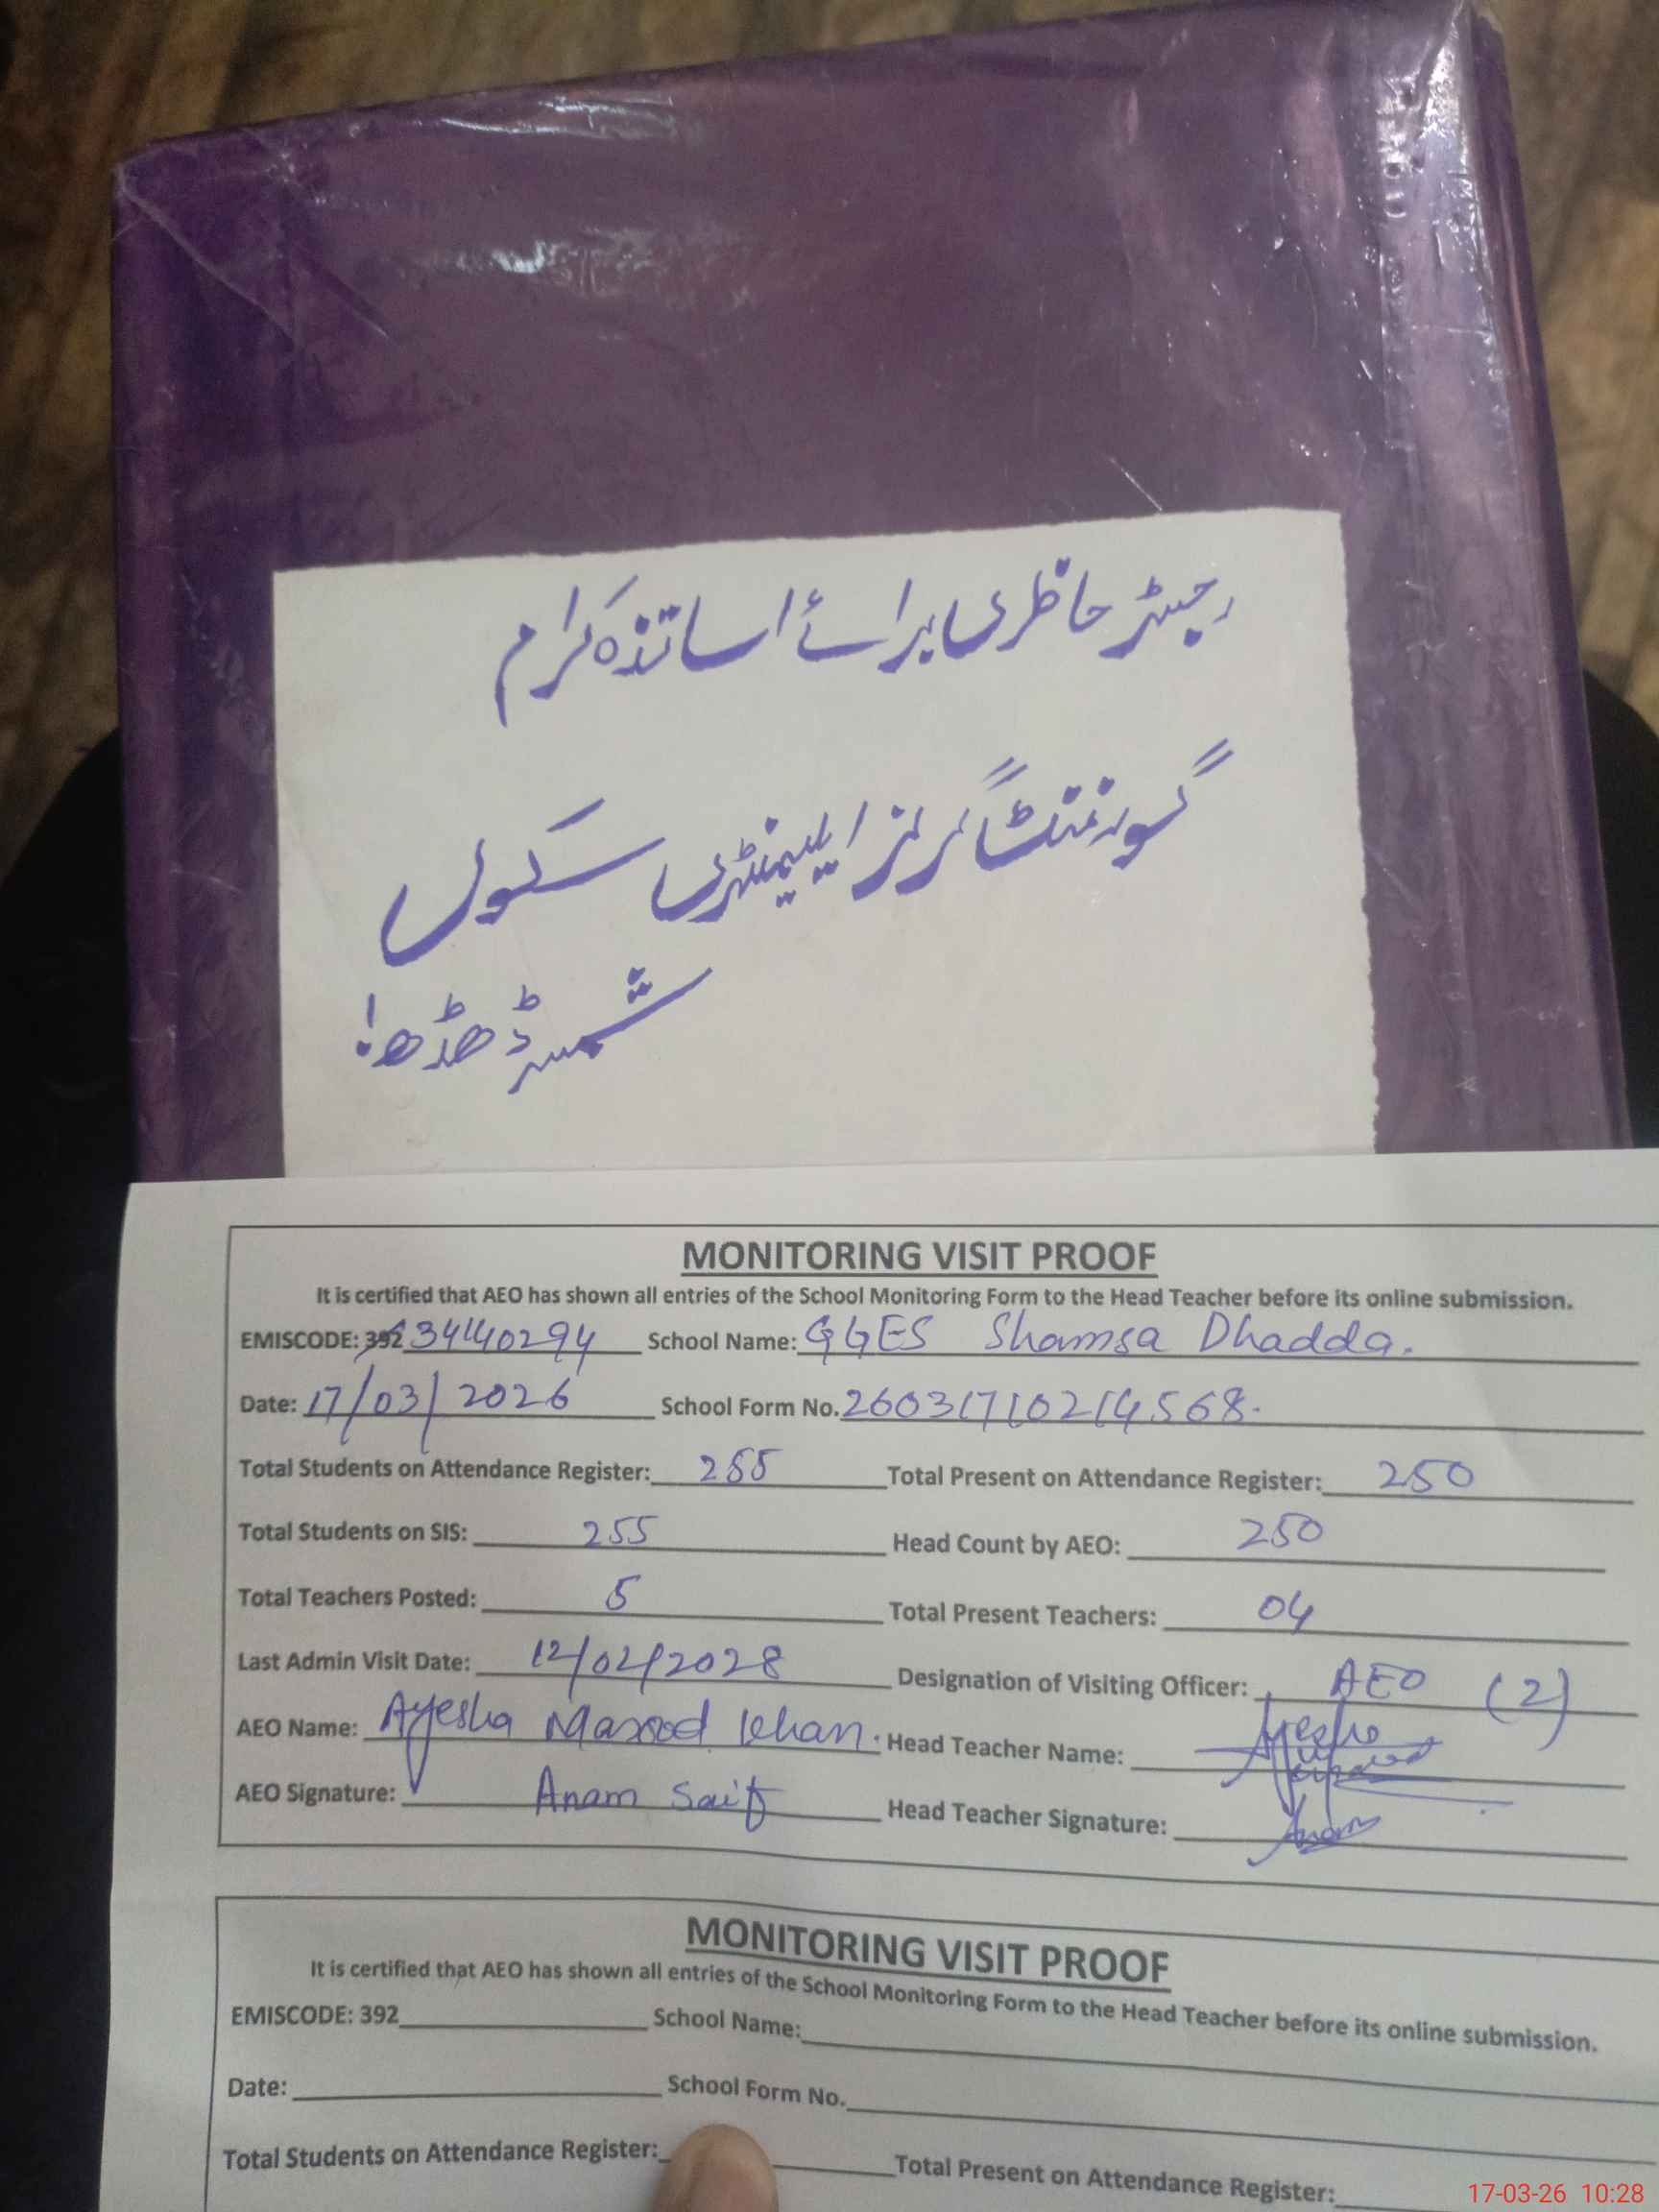 رجسٹر حاظری برائے اساتذہ کرام
گورنمنٹ گرلز ایلیمنٹری سکول
شمسہ ڈھڈھا!
MONITORING VISIT PROOF
It is certified that AEO has shown all entries of the School Monitoring Form to the Head Teacher before its online submission.
EMISCODE: 392 34140294 School Name: GGES Shamsa Dhadda.
Date: 17/03/2026 School Form No. 26031710214568.
Total Students on Attendance Register: 255 Total Present on Attendance Register: 250
Total Students on SIS: 255 Head Count by AEO: 250
Total Teachers Posted: 5 Total Present Teachers: 04
Last Admin Visit Date: 12/02/2028 Designation of Visiting Officer: AEO (2)
AEO Name: Ayesha Masood Khan. Head Teacher Name: Ayesha
AEO Signature: Anam Saif Head Teacher Signature: Anam
MONITORING VISIT PROOF
It is certified that AEO has shown all entries of the School Monitoring Form to the Head Teacher before its online submission.
EMISCODE: 392 School Name:
Date: School Form No.
Total Students on Attendance Register: Total Present on Attendance Register:
17-03-26 10:28